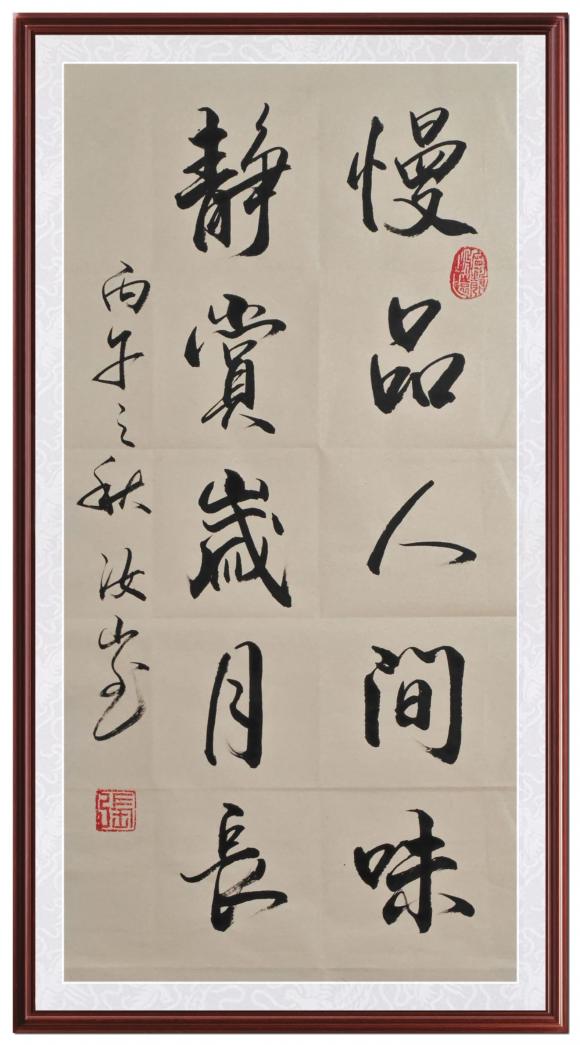 慢品人間味
静賞歲月長
丙午之秋 汝